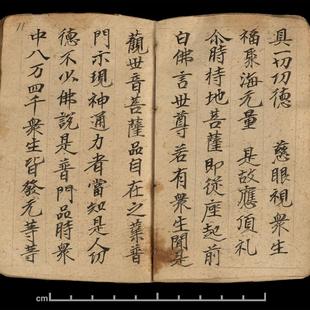 具一切功德　慈眼視衆生
福聚海无量　是故應頂礼
尒時持地菩薩即從座起前
白佛言世尊若有衆生聞是
觀世音菩薩品自在之業普
門示現神通力者當知是人功
德不少佛說是普門品時衆
中八万四千衆生皆發无等等
cm